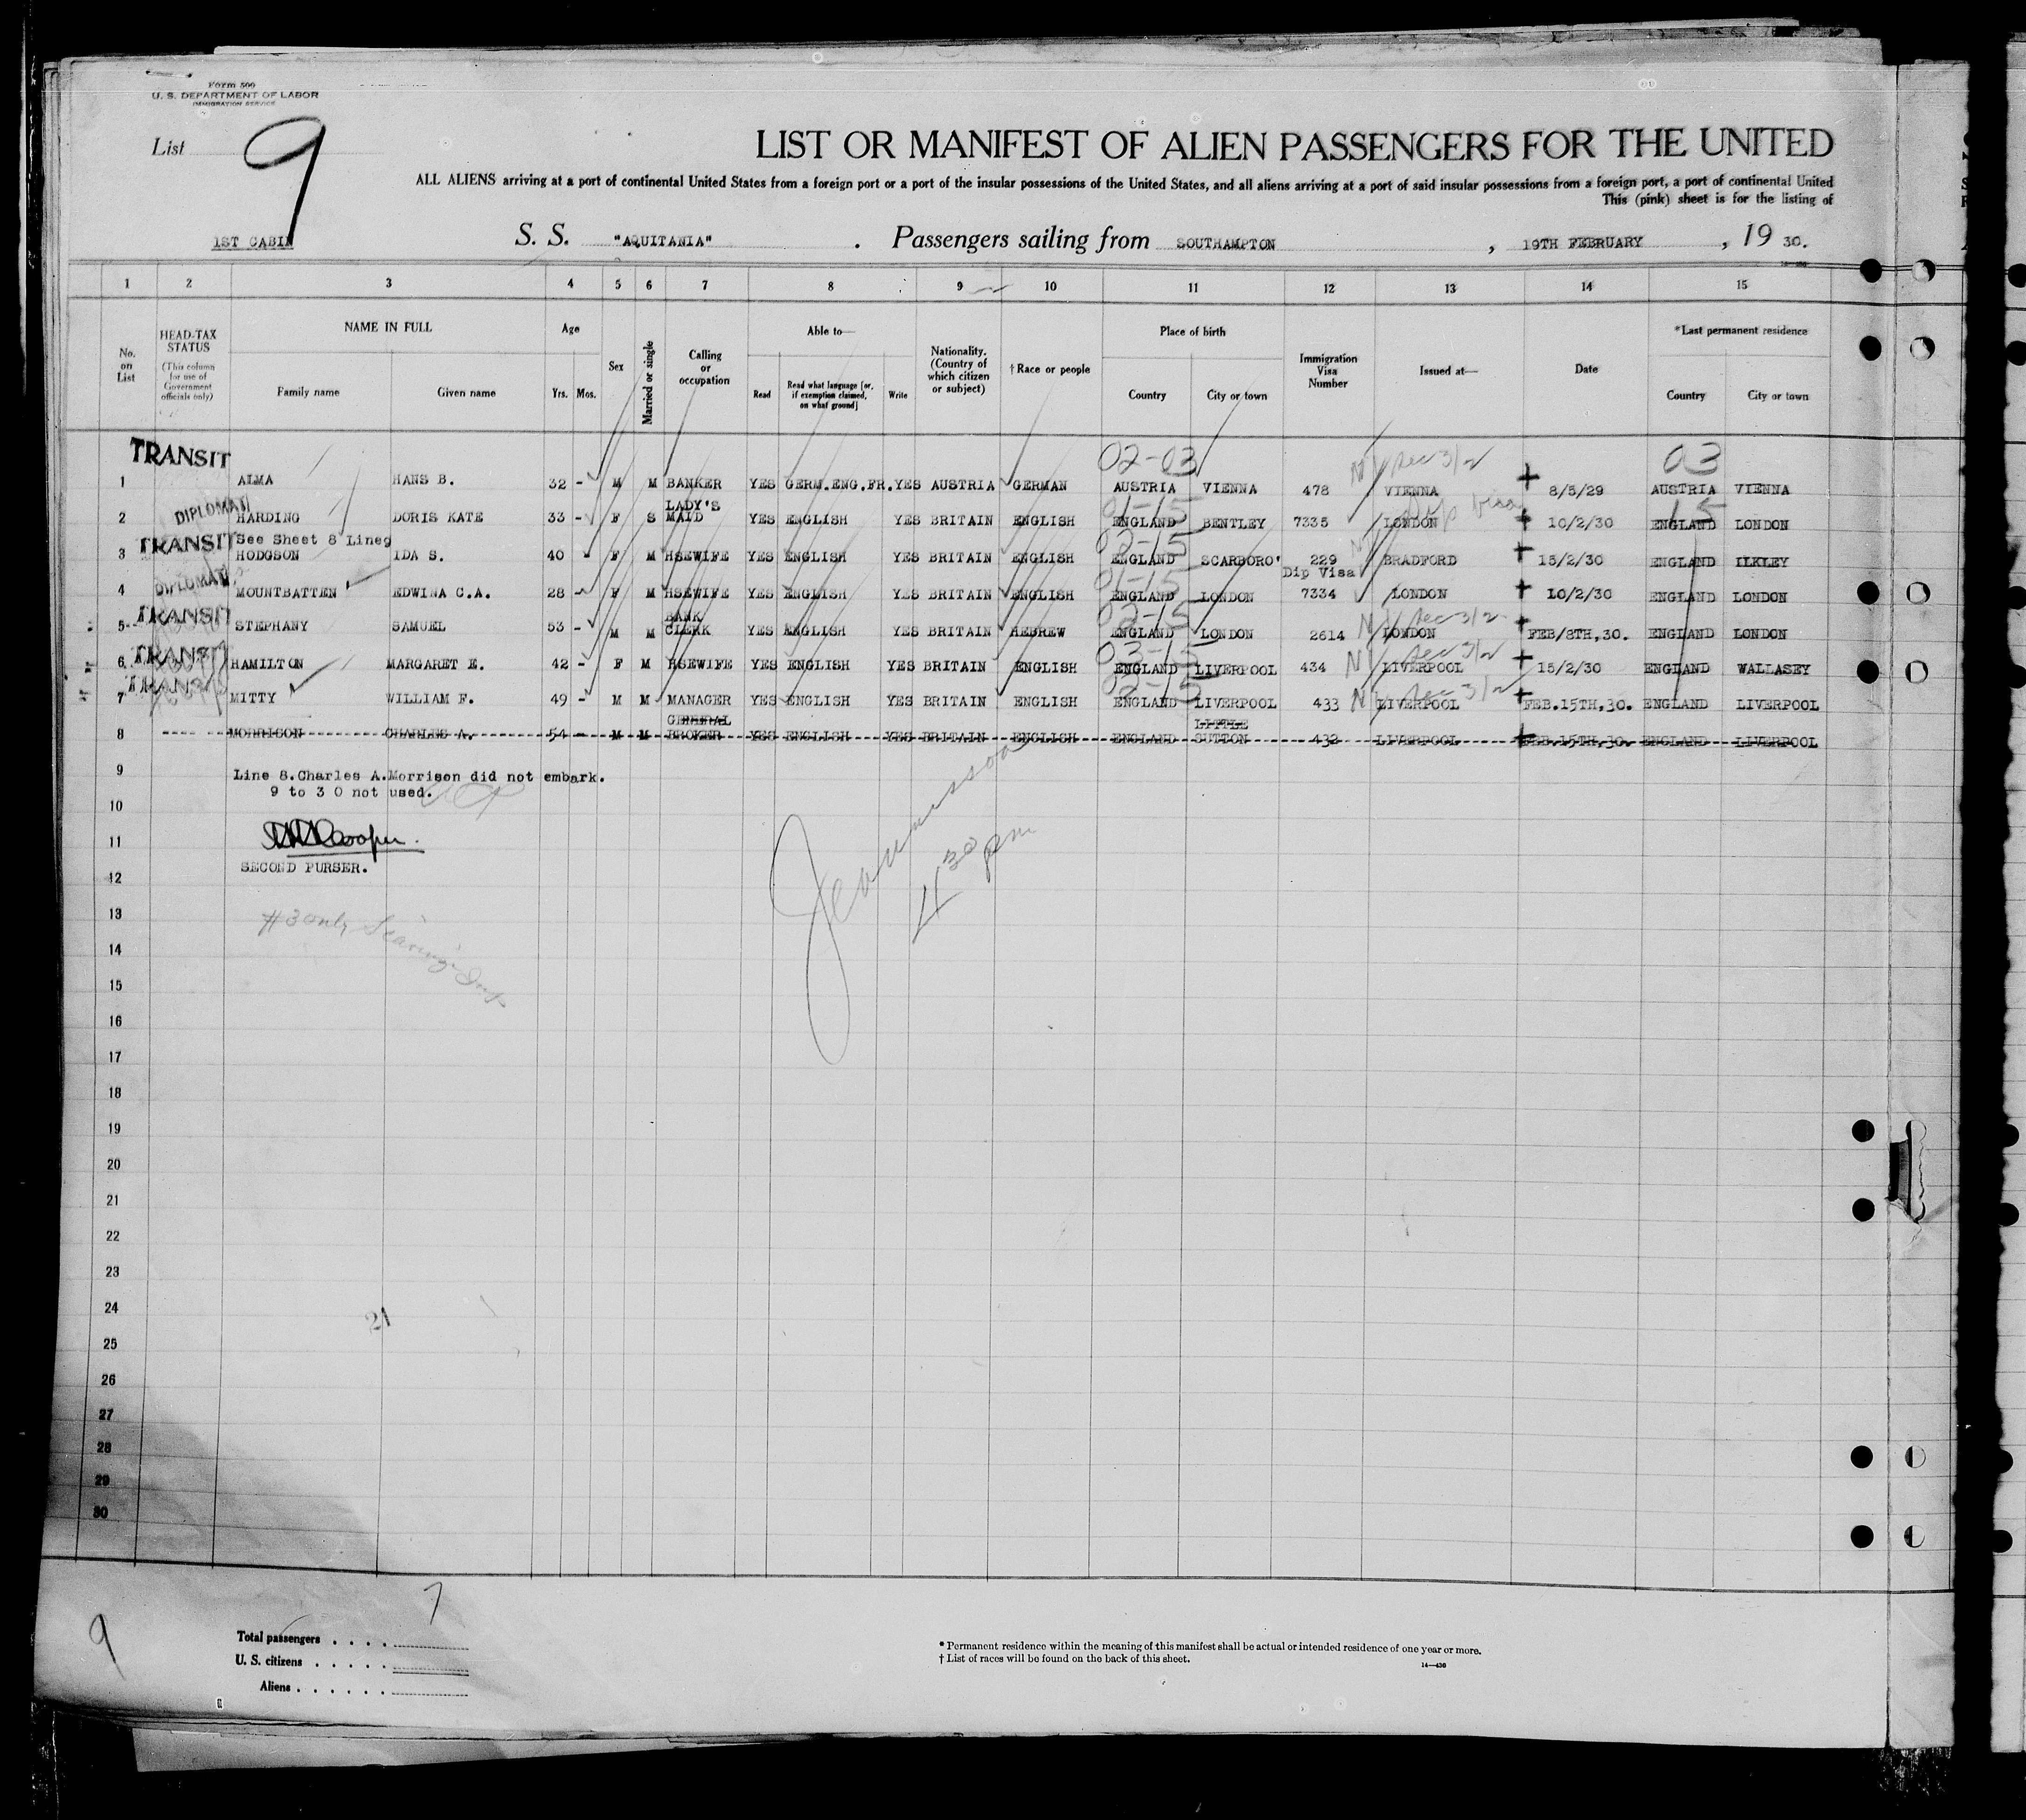 Form 500
U. S. DEPARTMENT OF LABOR
IMMIGRATION SERVICE
List 9
LIST OR MANIFEST OF ALIEN PASSENGERS FOR THE UNITED
ALL ALIENS arriving at a port of continental United States from a foreign port or a port of the insular possessions of the United States, and all aliens arriving at a port of said insular possessions from a foreign port, a port of continental United
This (pink) sheet is for the listing of
1ST CABIN S. S. "AQUITANIA" . Passengers sailing from SOUTHAMPTON , 19TH FEBRUARY , 19 30.
1 2 3 4 5 6 7 8 9 10 11 12 13 14 15
No. on List
HEAD-TAX STATUS
(This column for use of Government officials only)
NAME IN FULL
Family name Given name
Age
Yrs. Mos.
Sex
Married or single
Calling or occupation
Able to—
Read Read what language [or, if exemption claimed, on what ground] Write
Nationality. (Country of which citizen or subject)
†Race or people
Place of birth
Country City or town
Immigration Visa Number
Issued at—
Date
*Last permanent residence
Country City or town
TRANSIT 02-03 NY Sec 3/2 03
1 ALMA HANS B. 32 - M M BANKER YES GERM.ENG.FR. YES AUSTRIA GERMAN AUSTRIA VIENNA 478 VIENNA 8/5/29 AUSTRIA VIENNA
DIPLOMAT LADY'S 01-15 Dip Visa 15
2 HARDING DORIS KATE 33 - F S MAID YES ENGLISH YES BRITAIN ENGLISH ENGLAND BENTLEY 7335 LONDON 10/2/30 ENGLAND LONDON
TRANSIT See Sheet 8 Line9 02-15
3 HODGSON IDA S. 40 - F M HSEWIFE YES ENGLISH YES BRITAIN ENGLISH ENGLAND SCARBORO' 229 BRADFORD 15/2/30 ENGLAND ILKLEY
DIPLOMAT 01-15 Dip Visa
4 MOUNTBATTEN EDWINA C.A. 28 - F M HSEWIFE YES ENGLISH YES BRITAIN ENGLISH ENGLAND LONDON 7334 LONDON 10/2/30 ENGLAND LONDON
TRANSIT BANK 02-15 NY Sec 3/2
5 STEPHANY SAMUEL 53 - M M CLERK YES ENGLISH YES BRITAIN HEBREW ENGLAND LONDON 2614 LONDON FEB/8TH,30. ENGLAND LONDON
TRANSIT 03-15 NY Sec 3/2
6 HAMILTON MARGARET E. 42 - F M HSEWIFE YES ENGLISH YES BRITAIN ENGLISH ENGLAND LIVERPOOL 434 LIVERPOOL 15/2/30 ENGLAND WALLASEY
TRANSIT 02-15 NY Sec 3/2
7 MITTY WILLIAM F. 49 - M M MANAGER YES ENGLISH YES BRITAIN ENGLISH ENGLAND LIVERPOOL 433 LIVERPOOL FEB.15TH,30. ENGLAND LIVERPOOL
GENERAL LITTLE
8 MORRISON CHARLES A. 54 - M M BROKER YES ENGLISH YES BRITAIN ENGLISH ENGLAND SUTTON 432 LIVERPOOL FEB.15TH,30. ENGLAND LIVERPOOL
9 Line 8.Charles A.Morrison did not embark.
9 to 3 0 not used.
10
11
SECOND PURSER.
12
4 30 pm
13
#3 only
14
15
16
17
18
19
20
21
22
23
24
21
25
26
27
28
29
30
7
9
Total passengers
U. S. citizens
Aliens
* Permanent residence within the meaning of this manifest shall be actual or intended residence of one year or more.
† List of races will be found on the back of this sheet.
14—430